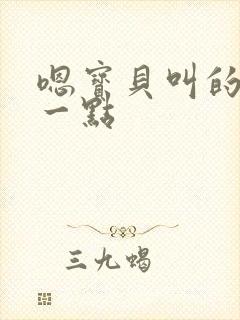 嗯寶貝叫的
一點
三九蝎